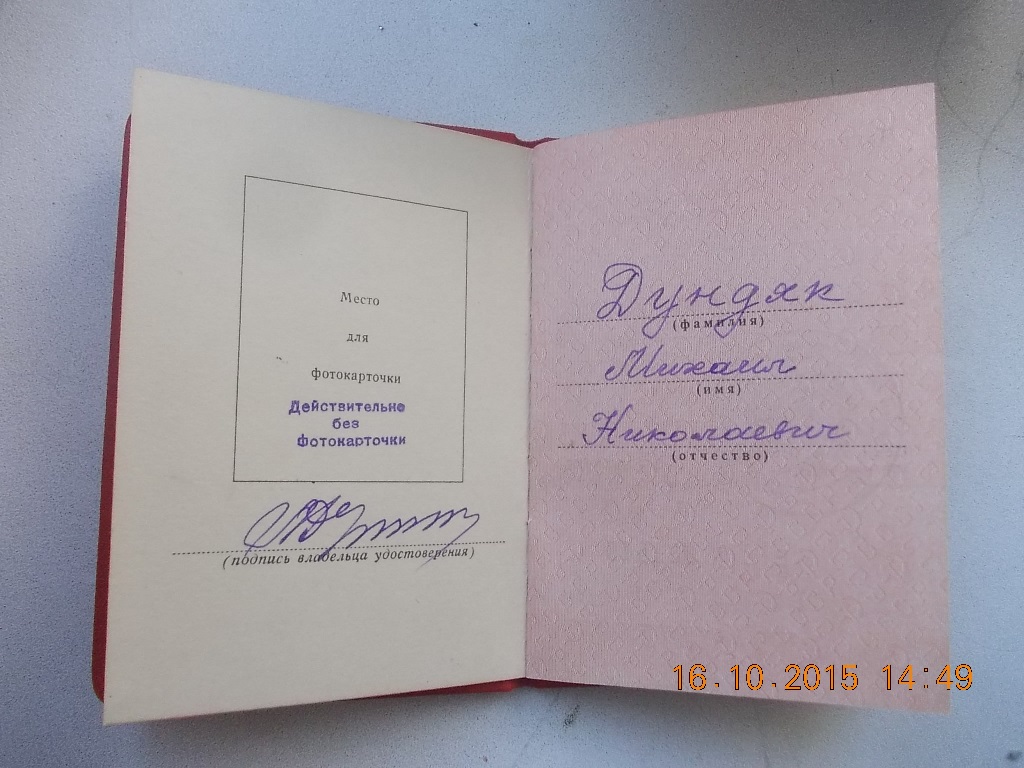 Место
для
фотокарточки
Действительно
без
фотокарточки
(подпись владельца удостоверения)
Дундяк
(фамилия)
Михаил
(имя)
Николаевич
(отчество)
16.10.2015 14:49